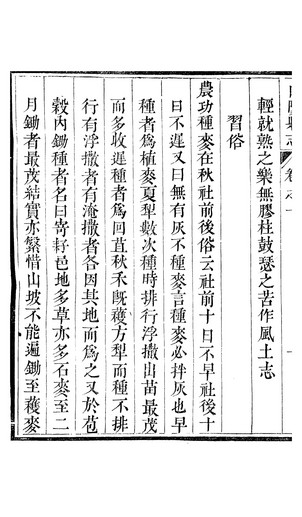 輕就熟之樂無膠柱鼓瑟之苦作風土志
習俗
農功種麥在秋社前後俗云社前十日不早社後十
日不遲又曰無有灰不種麥言種麥必拌灰也早
種者爲植麥夏犁數次種時排行浮撒出苗最茂
而多收遲種者爲回茬秋禾旣穫方犁而種不排
行有浮撒者有淹撒者各因其地而爲之又於苞
穀內鋤種者名曰耇耔邑地多草亦多石麥至二
月鋤者最茂結實亦繁惜山坡不能遍鋤至穫麥